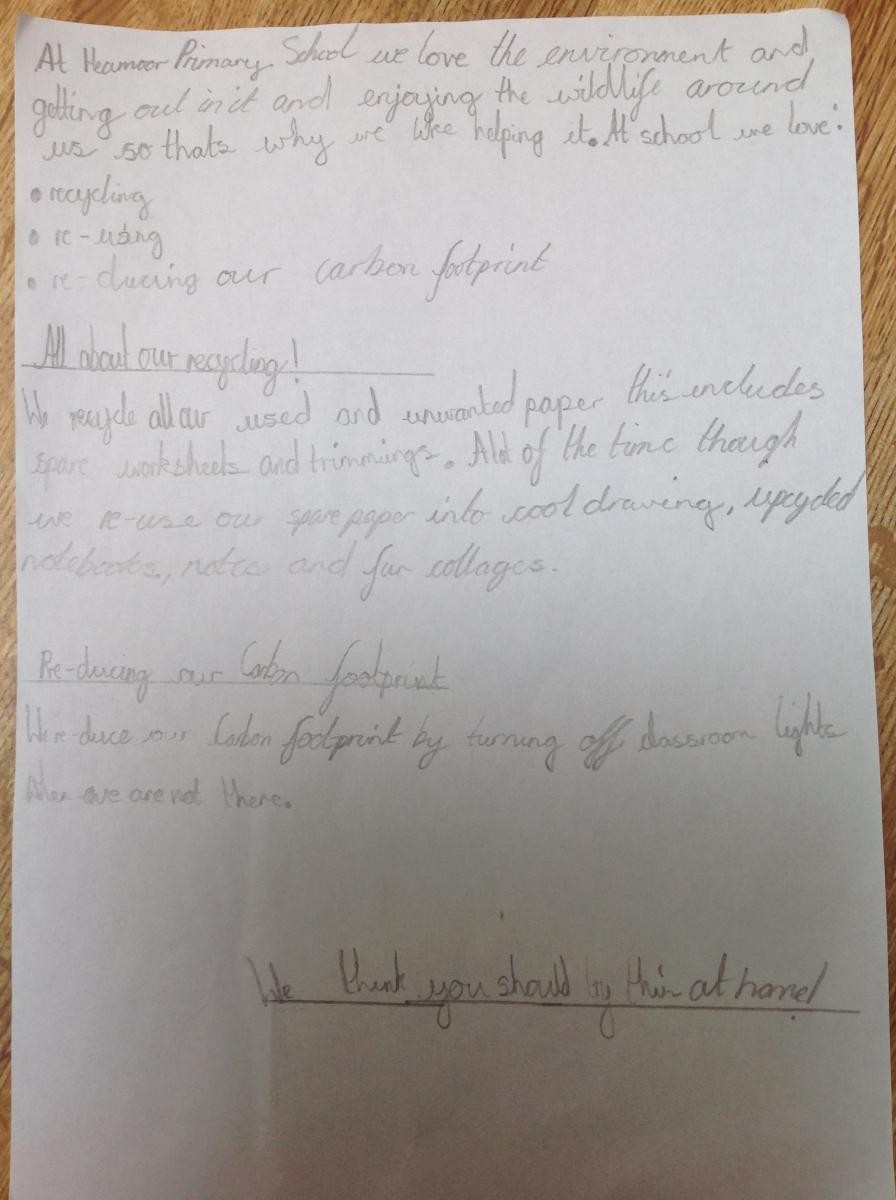 At Heamoor Primary School we love the environment and
getting out in it and enjoying the wildlife around
us so thats why we like helping it. At school we love:
• recycling
• re-using
• re-ducing our carbon footprint
All about our recycling!
We recycle all our used and unwanted paper this includes
spare worksheets and trimmings. Alot of the time though
we re-use our spare paper into cool drawing, upcycled
notebooks, notes and fun collages.
Re-ducing our Carbon footprint
We re-duce our Carbon footprint by turning off classroom lights
When we are not there.
We think you should try this at home!